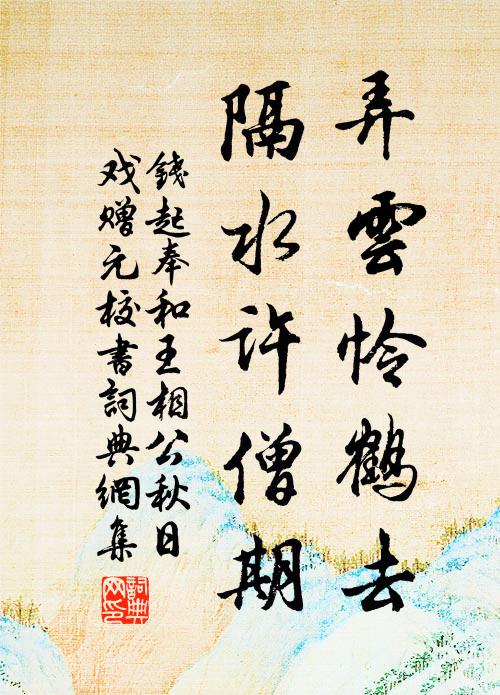 弄雲怜鶴去
隔水許僧期
錢起奉和王相公秋日
戏赠元校書詞典網集
詞典网印